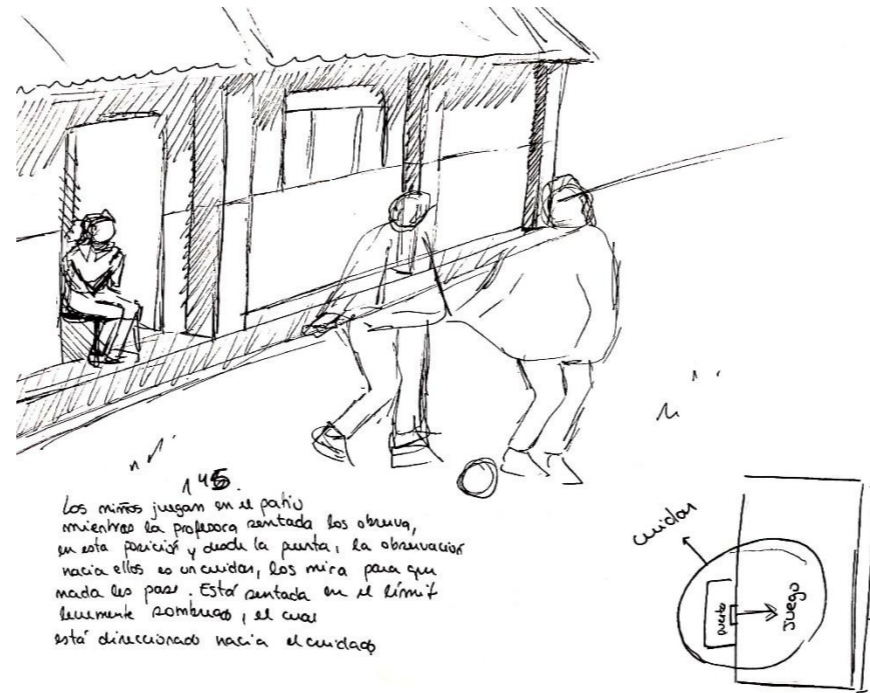 145.
Los niños juegan en el patio
mientras la profesora sentada los observa,
en esta posición y desde la puerta, la observación
hacia ellos es un cuidar, los mira para que
nada les pase. Está sentada en el límit
levemente sombreado, el cual
está direccionado hacia el cuidado
cuidar
puerta
Juego